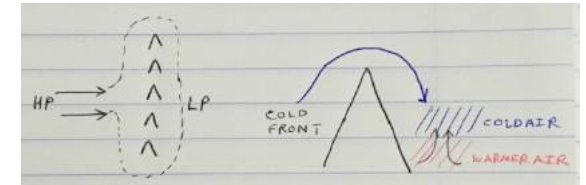 HP
LP
COLD
FRONT
COLDAIR
WARMER AIR